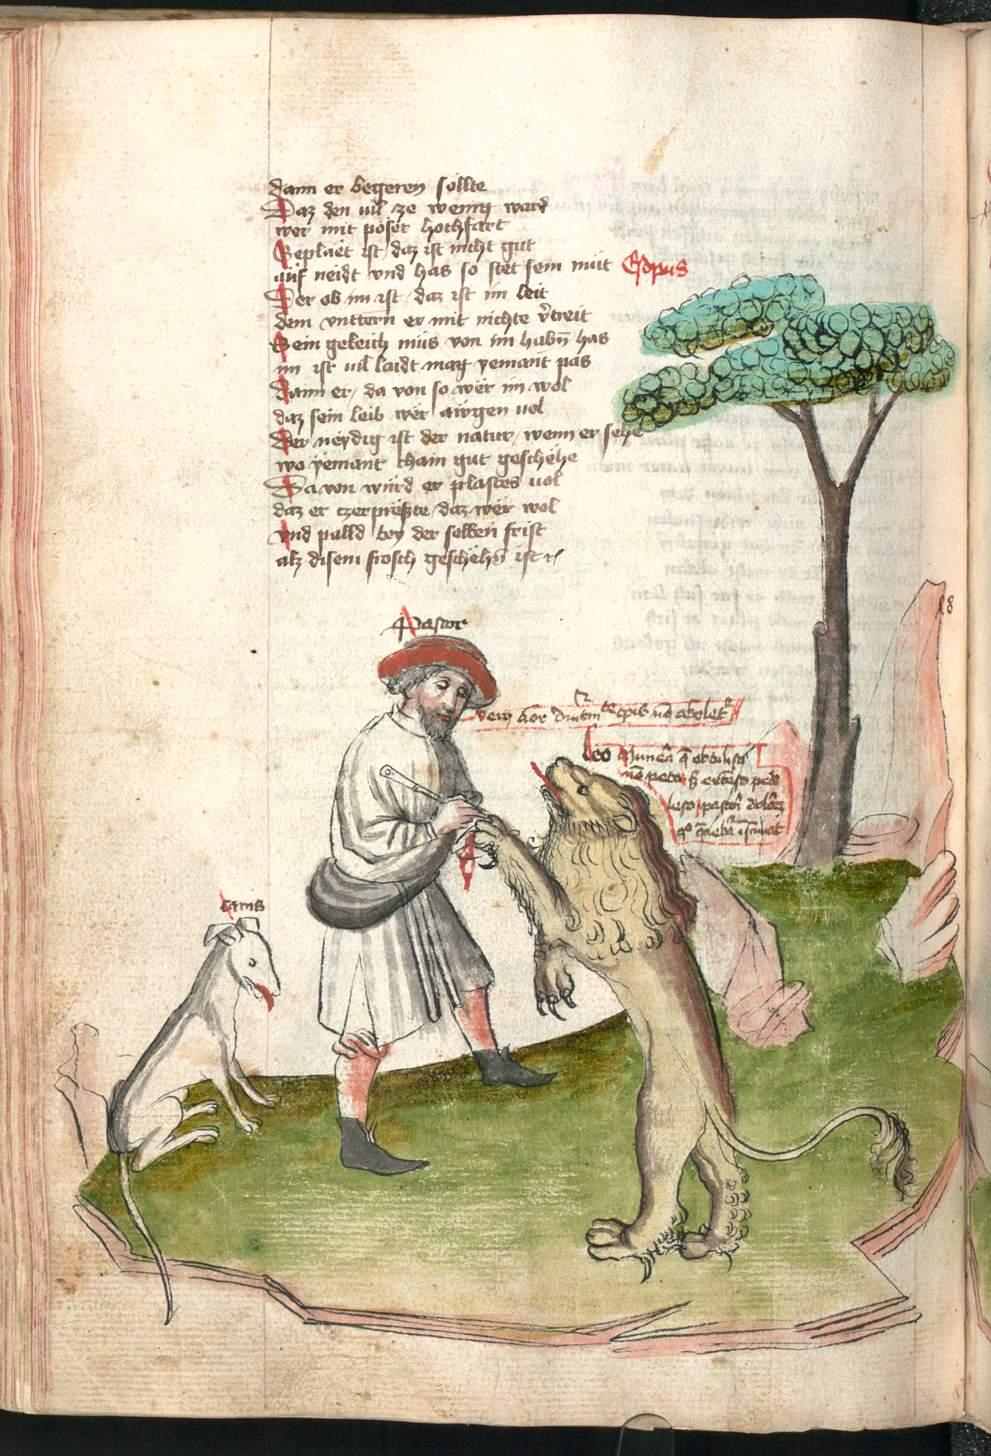 dann er begeren sollte
Daz den vil ze wenig ward
wer mit poser hochfart
Geplaet ist / daz ist nicht gut
auf neidt vnd has so stet sein mut Esopus
Der ob im ist / daz ist im leit
dem vnttern er mit nichte v̄treit
Sein geleich mus von im habn̄ has
im ist vil laidt mag yemant pas
dann er / da von so wer im wol
daz sein leib wer awgen vol
Der neydig ist der natur / wenn er sehe
wo yemant chain gut geschehe
Da von wurd er plastes vol
daz er czerpreste / daz wer wol
vnd palld bey der selben frist
alz disem frosch geschehn̄ ist
18
Pastor
leo
canis